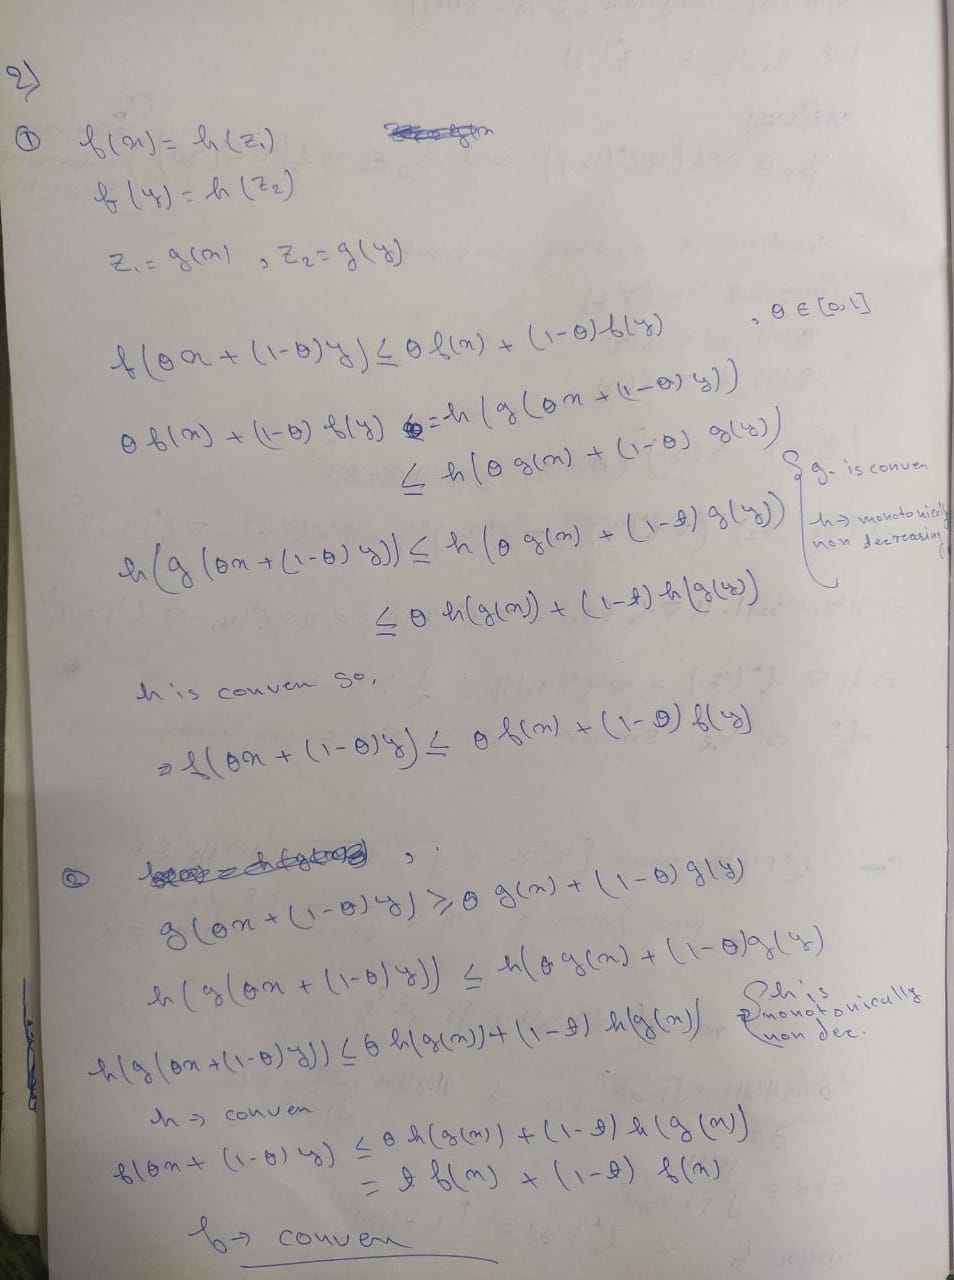 2)
① f(x) = h(z₁)
f(y) = h(z₂)
z₁ = g(x) , z₂ = g(y)
f(θx + (1-θ)y) ≤ θ f(x) + (1-θ) f(y) , θ ∈ [0,1]
θ f(x) + (1-θ) f(y) = h(g(θx + (1-θ) y))
≤ h(θ g(x) + (1-θ) g(y))
{ g - is convex
h → monotonically
non decreasing
h(g(θx + (1-θ) y)) ≤ h(θ g(x) + (1-θ) g(y))
≤ θ h(g(x)) + (1-θ) h(g(y))
h is convex so,
⇒ f(θx + (1-θ)y) ≤ θ f(x) + (1-θ) f(y)
②
g(θx + (1-θ)y) ≥ θ g(x) + (1-θ) g(y)
h(g(θx + (1-θ)y)) ≤ h(θ g(x) + (1-θ)g(y)
h(g(θx + (1-θ)y)) ≤ θ h(g(x)) + (1-θ) h(g(x))
{ h is
monotonically
non dec.
h → convex
f(θx + (1-θ) y) ≤ θ h(g(x)) + (1-θ) h(g(x))
= θ f(x) + (1-θ) f(x)
f → convex